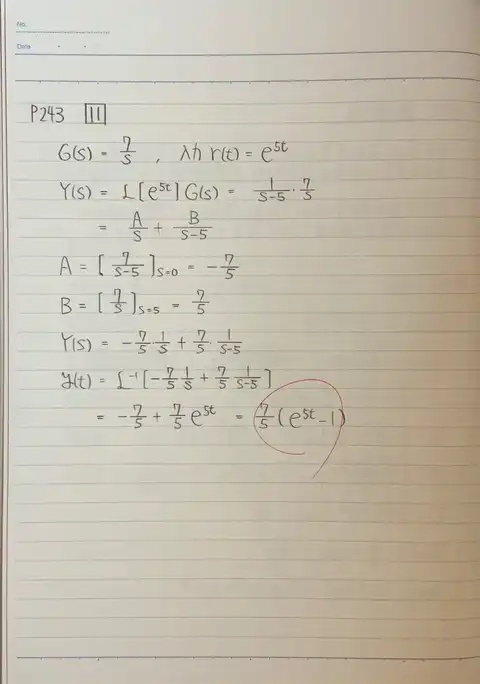 No.
Date
P243 11
G(s) = 7/s , 入力 r(t) = e^{5t}
Y(s) = L[e^{5t}]G(s) = 1/(s-5)・7/s
= A/s + B/(s-5)
A = [7/(s-5)]_{s=0} = -7/5
B = [7/s]_{s=5} = 7/5
Y(s) = -7/5・1/s + 7/5・1/(s-5)
y(t) = L^{-1}[-7/5 1/s + 7/5 1/(s-5)]
= -7/5 + 7/5 e^{5t} = 7/5(e^{5t}-1)